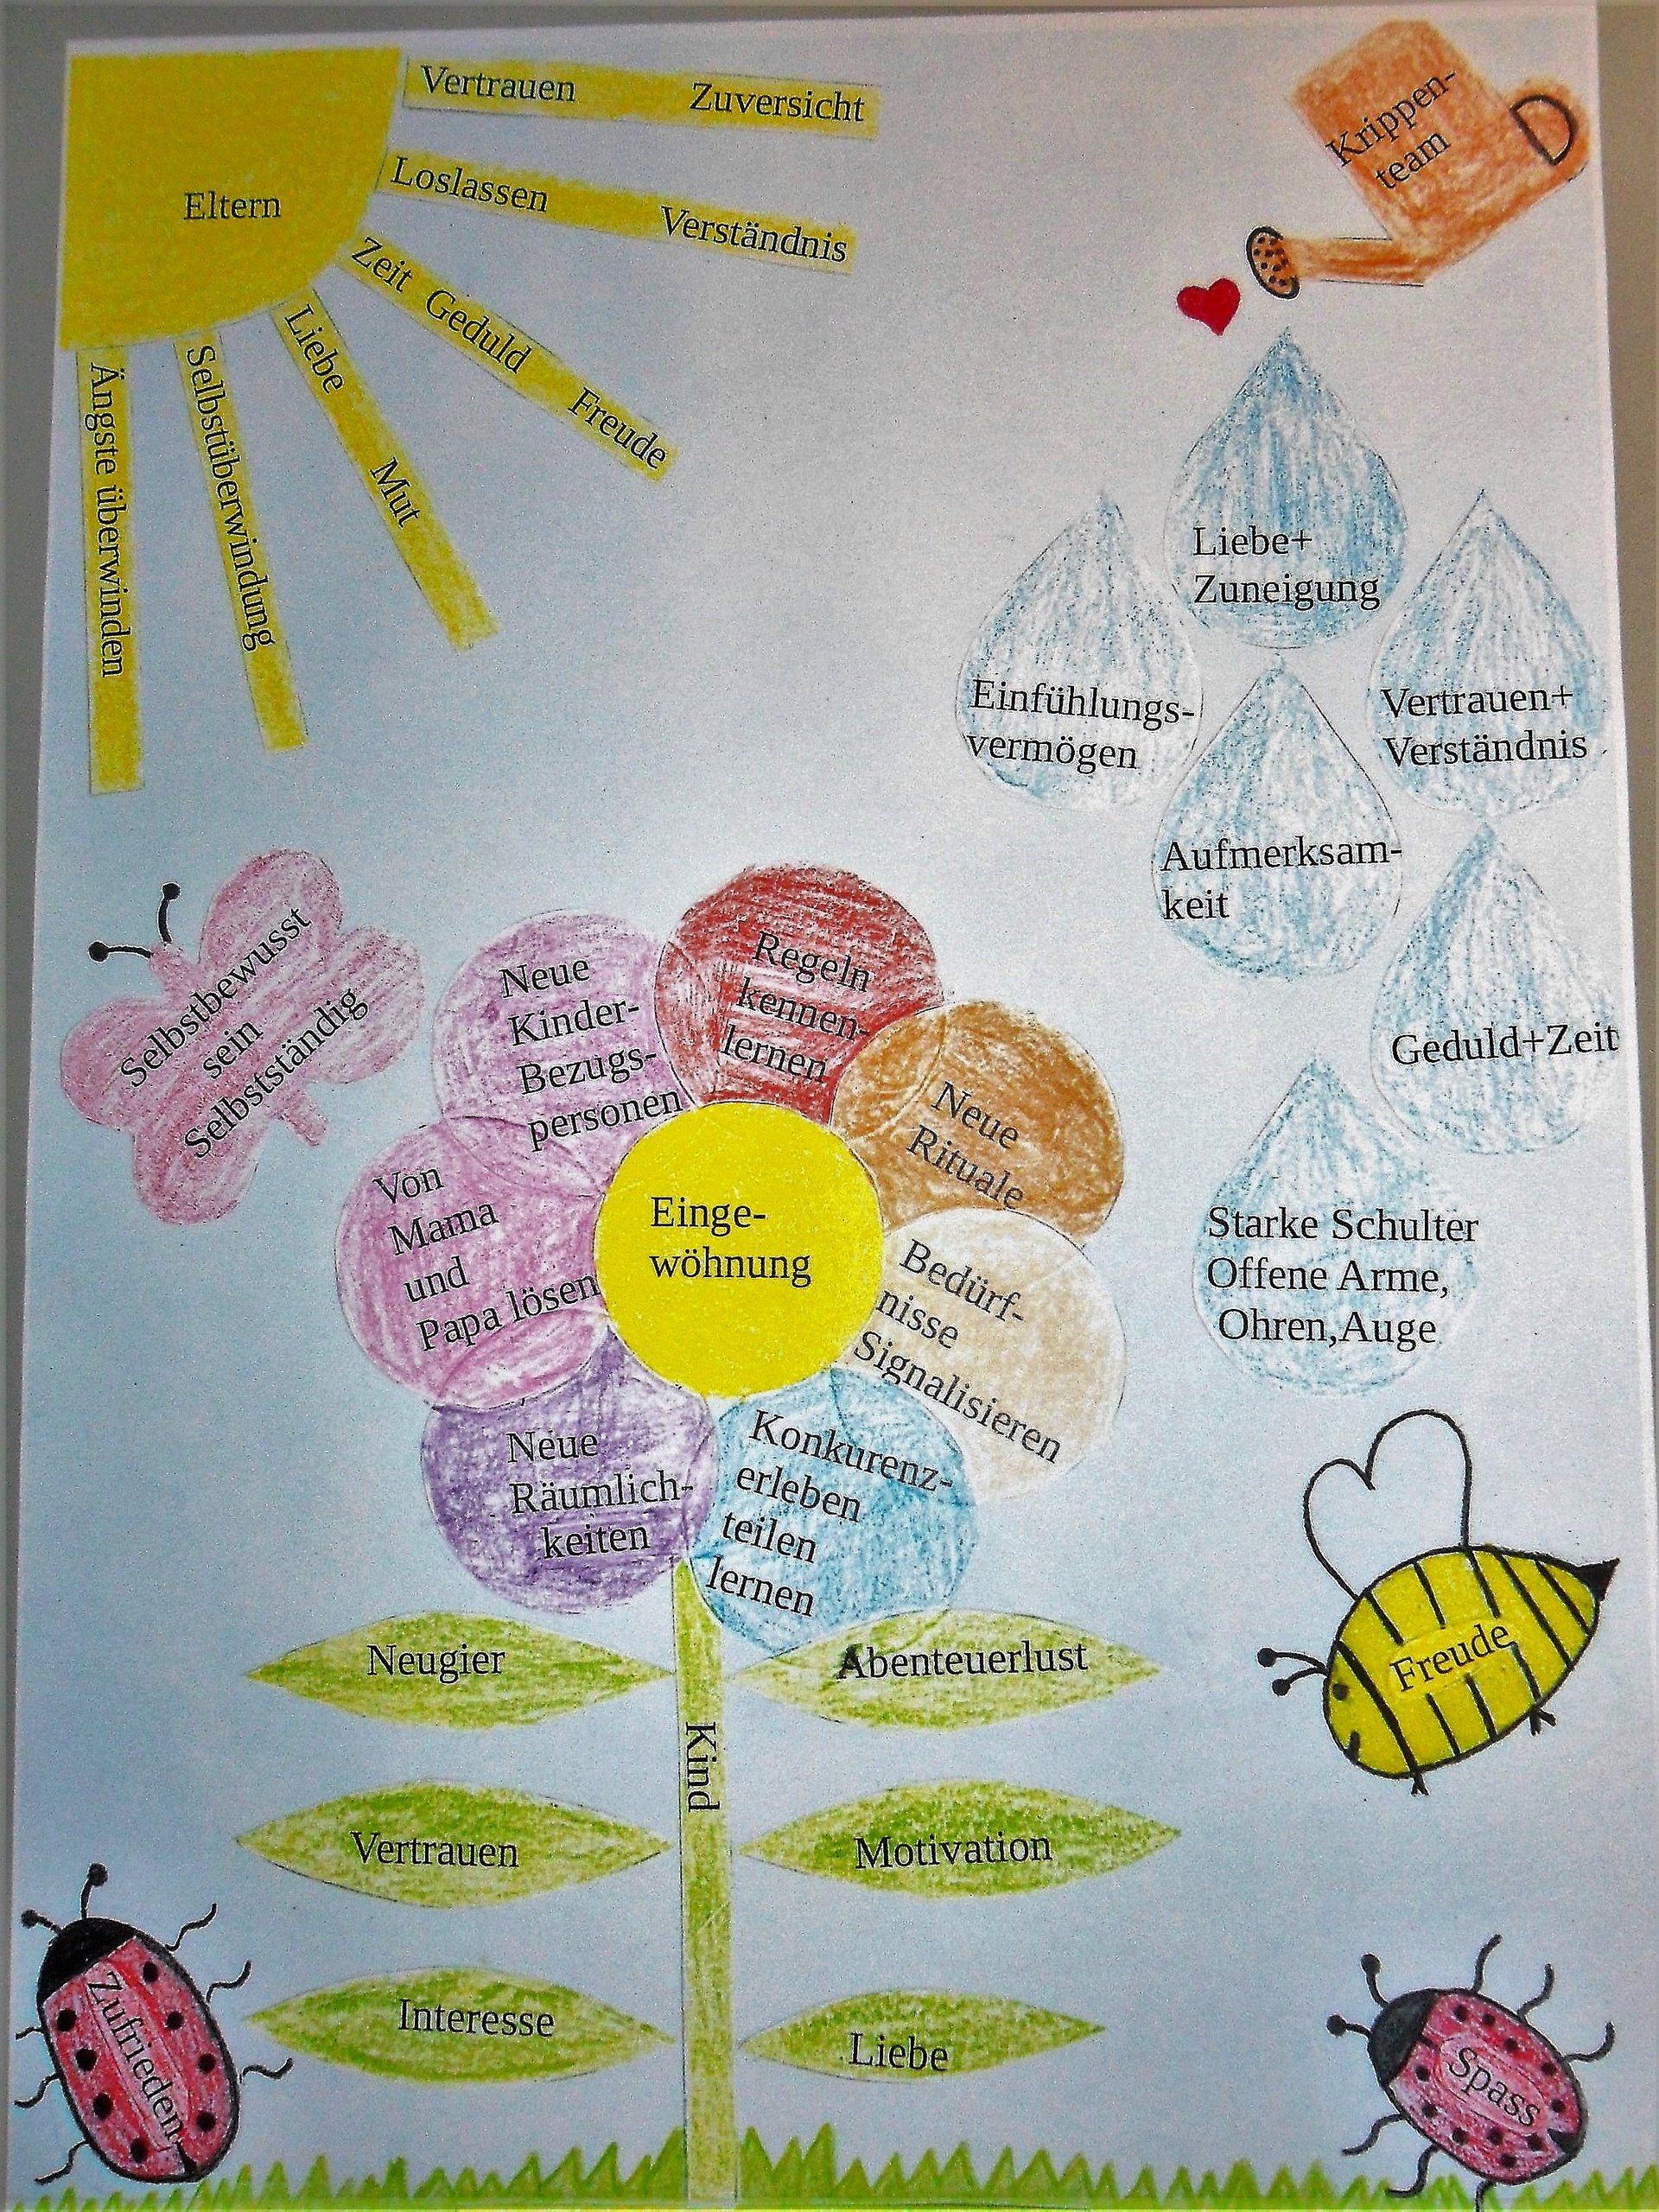 Eltern
Vertrauen Zuversicht
Loslassen Verständnis
Zeit Geduld Freude
Liebe Mut
Selbstüberwindung
Ängste überwinden
Krippen-
team
Liebe+
Zuneigung
Einfühlungs-
vermögen
Vertrauen+
Verständnis
Aufmerksam-
keit
Geduld+Zeit
Starke Schulter
Offene Arme,
Ohren,Auge
Selbstbewusst
sein
Selbstständig
Neue
Kinder-
Bezugs-
personen
Regeln
kennen-
lernen
Neue
Rituale
Bedürf-
nisse
Signalisieren
Konkurenz-
erleben
teilen
lernen
Neue
Räumlich-
keiten
Von
Mama
und
Papa lösen
Einge-
wöhnung
Freude
Neugier
Abenteuerlust
Kind
Vertrauen
Motivation
Interesse
Liebe
Zufrieden
Spass